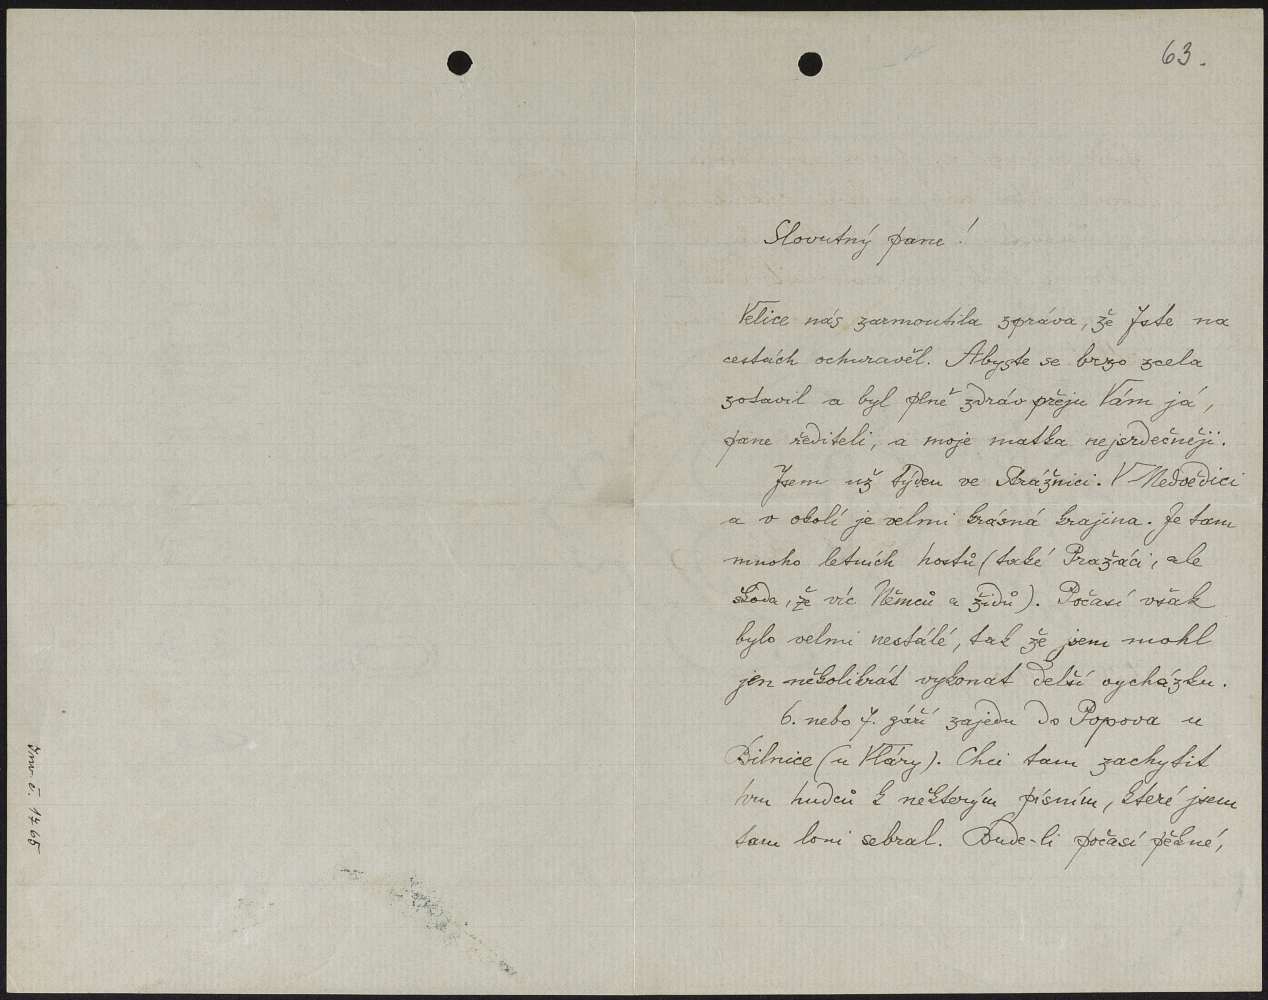 63.
Slovutný pane!
Velice nás zarmoutila zpráva, že Jste na
cestách ochuravěl. Abyste se brzo zcela
zotavil a byl plně zdráv přeju Vám já,
pane řediteli, a moje matka nejsrdečněji.
Jsem už týden ve Strážnici. V Nedvědici
a v okolí je velmi krásná krajina. Je tam
mnoho letních hostů (také Pražáci, ale
škoda, že víc Němců a židů). Počasí však
bylo velmi nestálé, tak že jsem mohl
jen několikrát vykonat delší vycházku.
6. nebo 7. září zajedu do Popova u
Bilnice (u Vláry). Chci tam zachytit
hru hudců k některým písním, které jsem
tam loni sebral. Bude-li počasí pěkné,
Inv. č. 1465